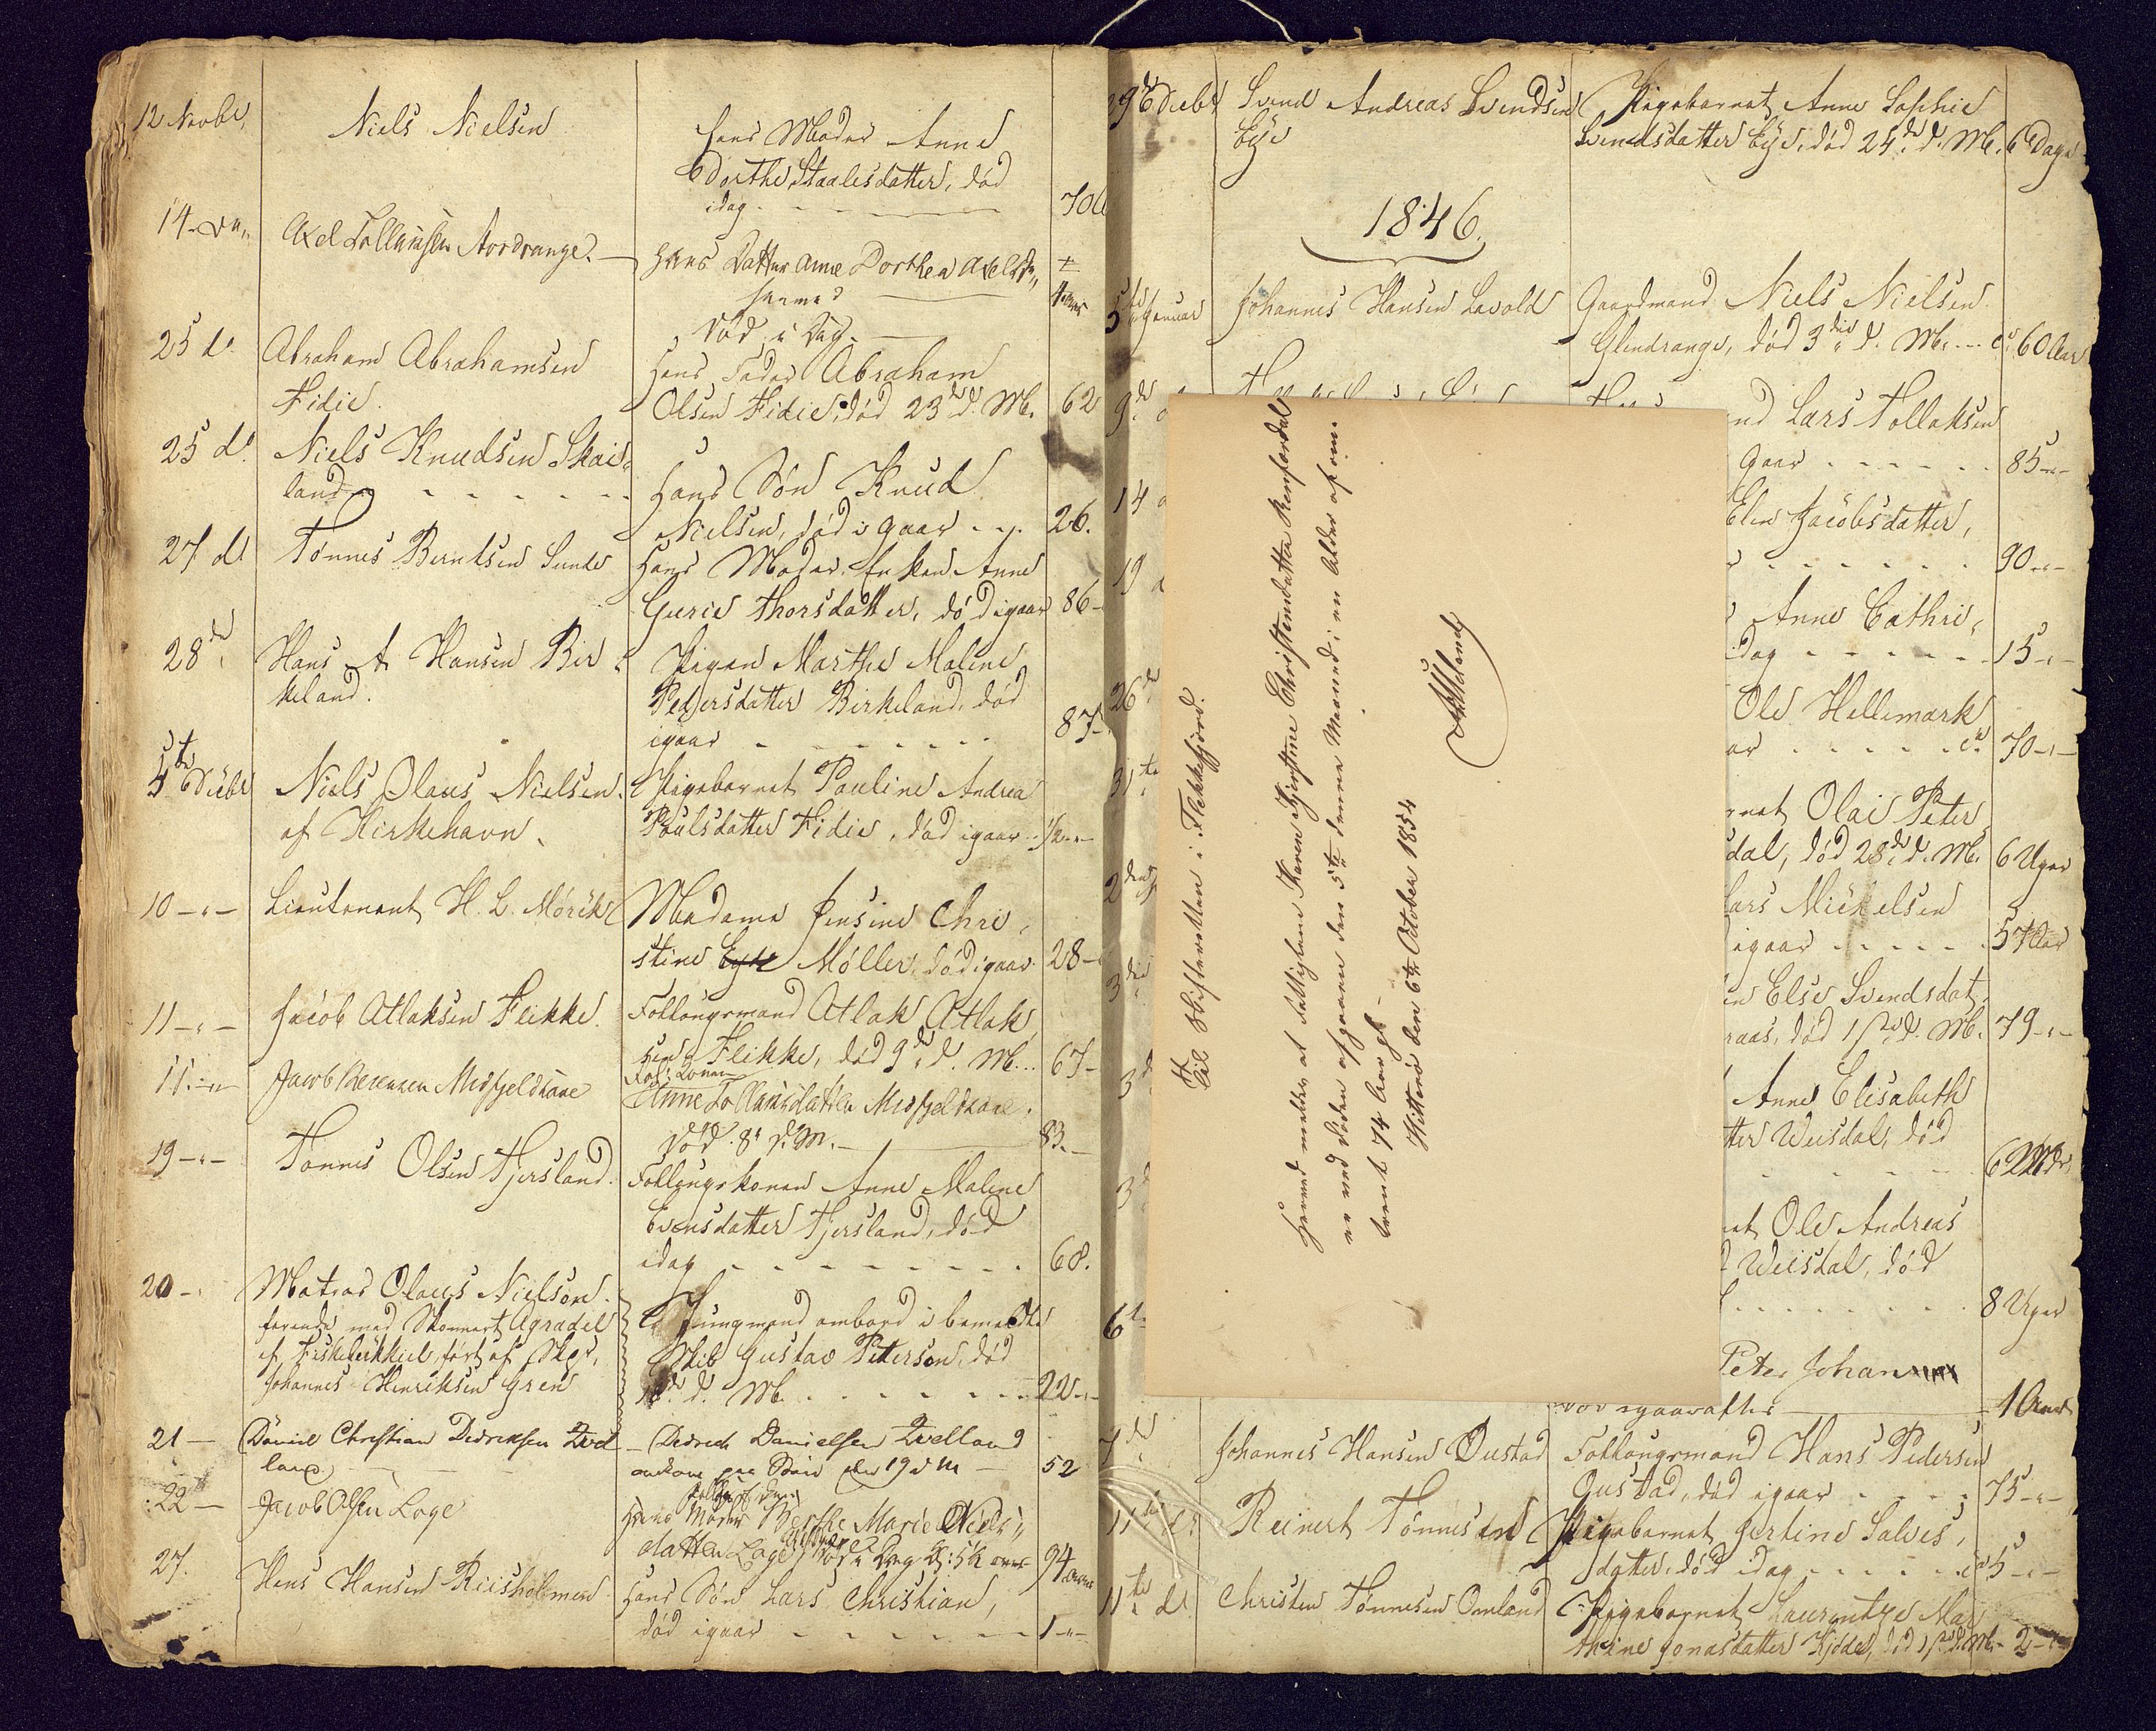 12 Novbr,
Niels Nielsen
hans Moder Anne
Dorthe Staalesdatter, død
idag
70
14.
Axel Tollaksen Nordrange.
Hans Datter Anne Dorthea Axelsd
død i Dag.
25 d.
Abraham Abrahamsen
Fidie.
Hans Fader Abraham
Olsen Fidie, død 23de d. M.
62
25 d.
Niels Knudsen Skais-
land
Hans Søn Knud
Nielsen, død i gaar
26.
27 d.
Tønnes Berntsen Sunde
Hans Moder, Enken Anne
Gurie Thorsdatter, død igaar
86
28de
Hans A Hansen Bir-
keland.
Pigen Marthe Maline
Pedersdatter Birkeland, død
igaar
87
5te Decbr
Niels Olaus Nielsen
af Kirkehavn.
Pigebarnet Pauline Andrea
Paulsdatter Fidie, død igaar
1/2
10
Lieutenant H. L. Mørck
Madame Jensine Chri-
stine Møller, død igaar
28
11
Jacob Atlaksen Fleikke.
Follougsmand Atlak Atlak-
sen Fleikke, død 9de d. M.
67
11
Jacob Midfjeldsaae
Anne Tollaksdatter Midfjeldsaae.
død 8. d. M.
83
19
Tønnes Olsen Tjersland.
Follougskonen Anne Maline
Evensdatter Tjersland, død
idag
68.
20
Matros Olaus Nielson.
farende med Skonnert
ført af Skpr.
Johannes Henriksen Gren
Jungmand ombord i bemeldte
Skib Gustav Peterson, død
18de d. M.
22
21
Daniel Christian Didriksen
land
Didrich Danielsen
den 19 d M
52
22
Jacob Olsen Loge
Hans Moder Berthe Marie Niels
datter Loge, død i Dag
94
27.
Hans Hansen Riisholmen
Hans Søn Lars Christian,
død igaar
1
29de Decbr
Svend Andreas Svendsen
Eye
Pigebarnet Anne Sophie
Svendsdatter Eye, død 24de d. M.
6 Dage
1846.
5te Januar
Johannes Hansen Lavold
Gaardmand Niels Nielsen
Glendrange, død 3die d. M.
60 Aar
9de
nd Lars Tollaksen
gaar
85
14
Elen Jacobsdatter,
90
19
Anne Cathri-
idag
15
26de
Ole Hellemark
ar
70
31te
rnet Olai Peter
dal, død 28de d. M.
6 Uger
2den
Lars Mickelsen
igaar
57 Aar
3die
en Else Svendsdat-
raas, død 1ste d. M.
79
3d
Anne Elisabeth
tter Weisdal, død
6
3d
et Ole Andreas
Weisdal, død
8 Uger
6te
Peter Johan
1 Aar
7de
Johannes Hansen Øustad
Follougsmand Hans Pedersen
Øustad, død igaar
75
11te
Reinert Tønnesen
Pigebarnet Gertine Salves-
datter, død idag
5
11te d.
Christen Tønnesen Omland
Pigebarnet Laurentze Ma-
thine Jonasdatter Kjødde, død 1ste d. M.
2
Til Skifteretten i Flekkefjord.
Herved meldes at Salig Karen Kjerstine Christensdatter
er ved Døden afgaaen den 5te denne Maaned i en Alder af om-
trent 74 Aar gl.
Hitterø den 6te October 1854